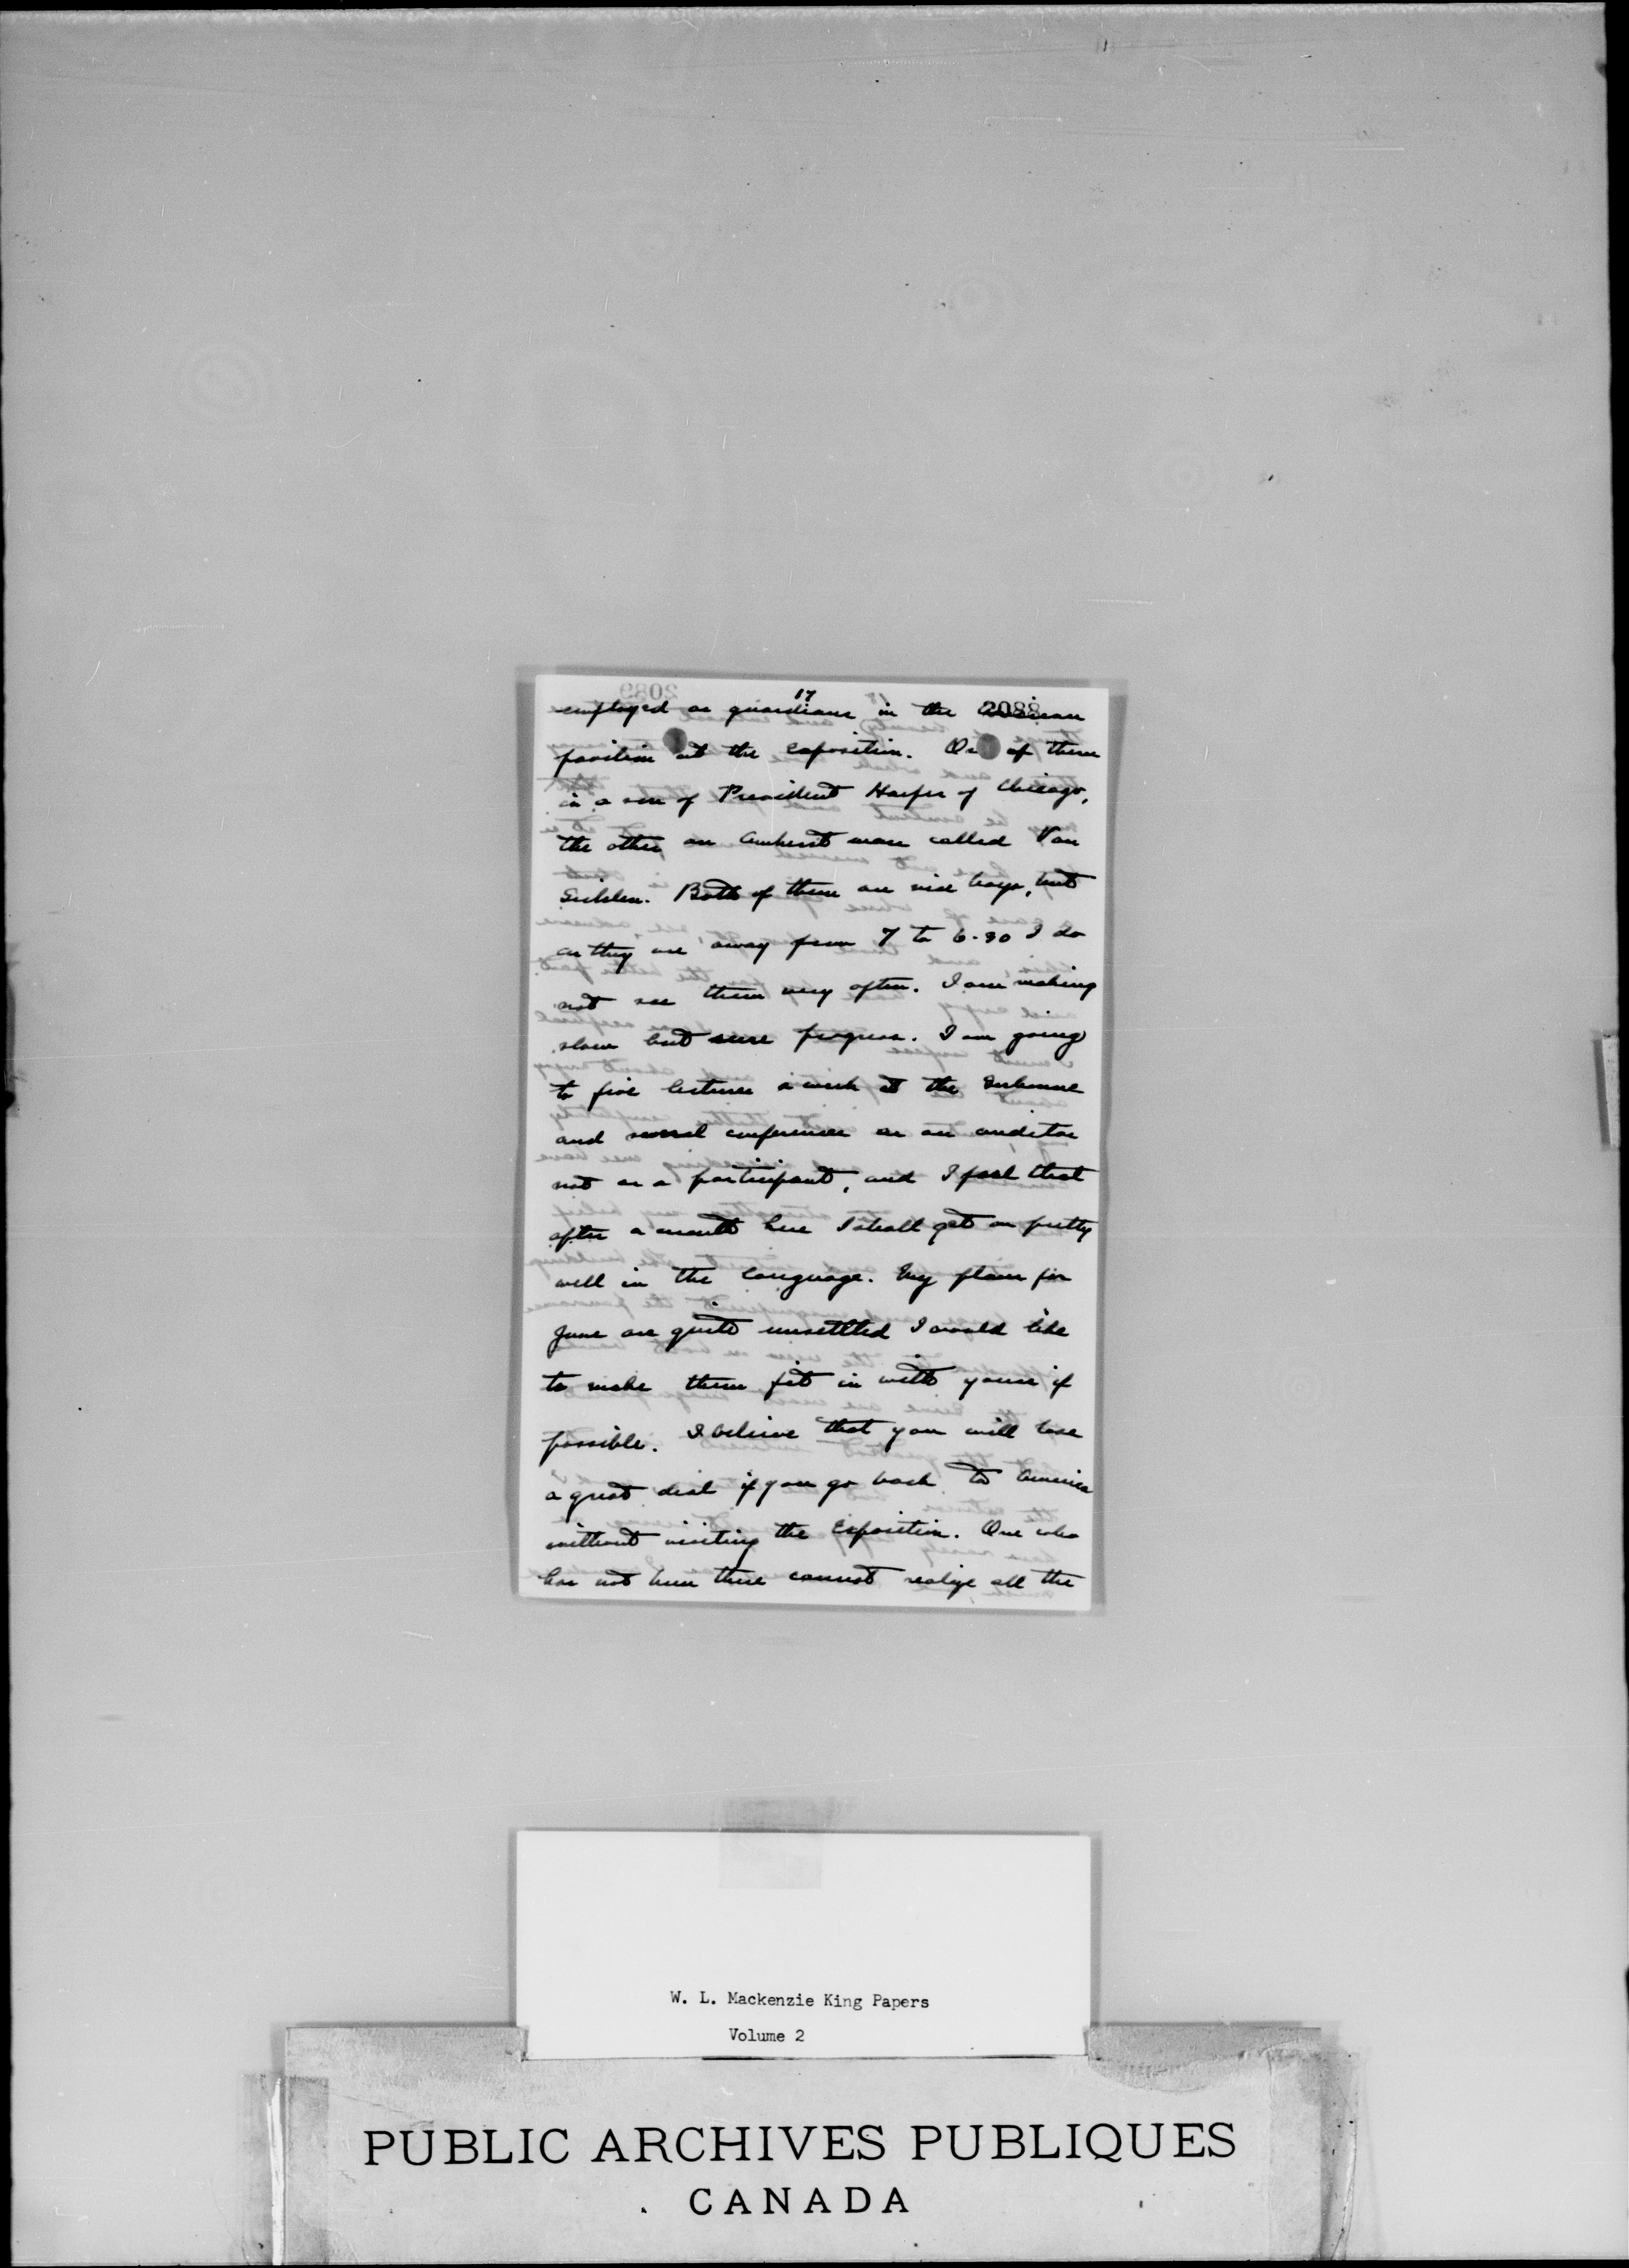 17
2088
employed as guardians in the American
pavilion at the Exposition. One of them
is a son of President Harper of Chicago,
the other an Amherst man called Van
Sicklen. Both of them are nice boys, but
as they are away from 7 to 6.30 I do
not see them very often. I am making
slow but sure progress. I am going
to five lectures a week at the Sorbonne
and several conferences as an auditor
not as a participant, and I feel that
after a month here I shall get on pretty
well in the language. My plans for
June are quite unsettled I would like
to make them fit in with yours if
possible. I believe that you will lose
a great deal if you go back to America
without visiting the Exposition. One who
has not been there cannot realize all the
W. L. Mackenzie King Papers
Volume 2
PUBLIC ARCHIVES PUBLIQUES
CANADA